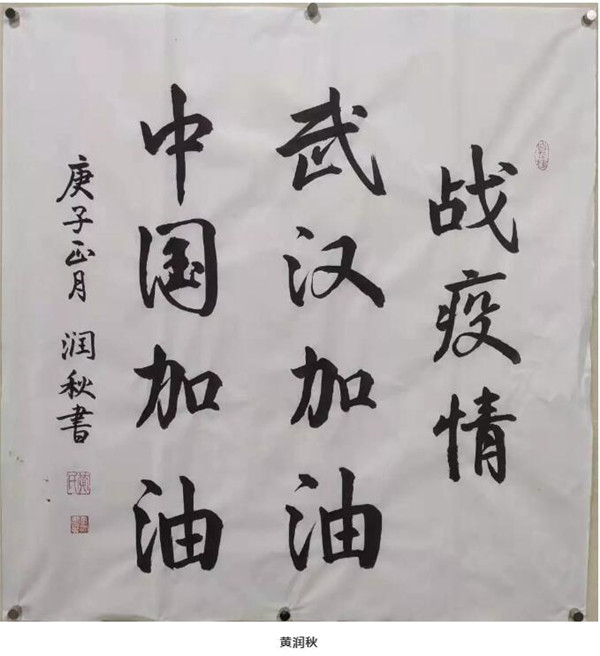 战疫情
武汉加油
中国加油
庚子正月 润秋书
黄润秋